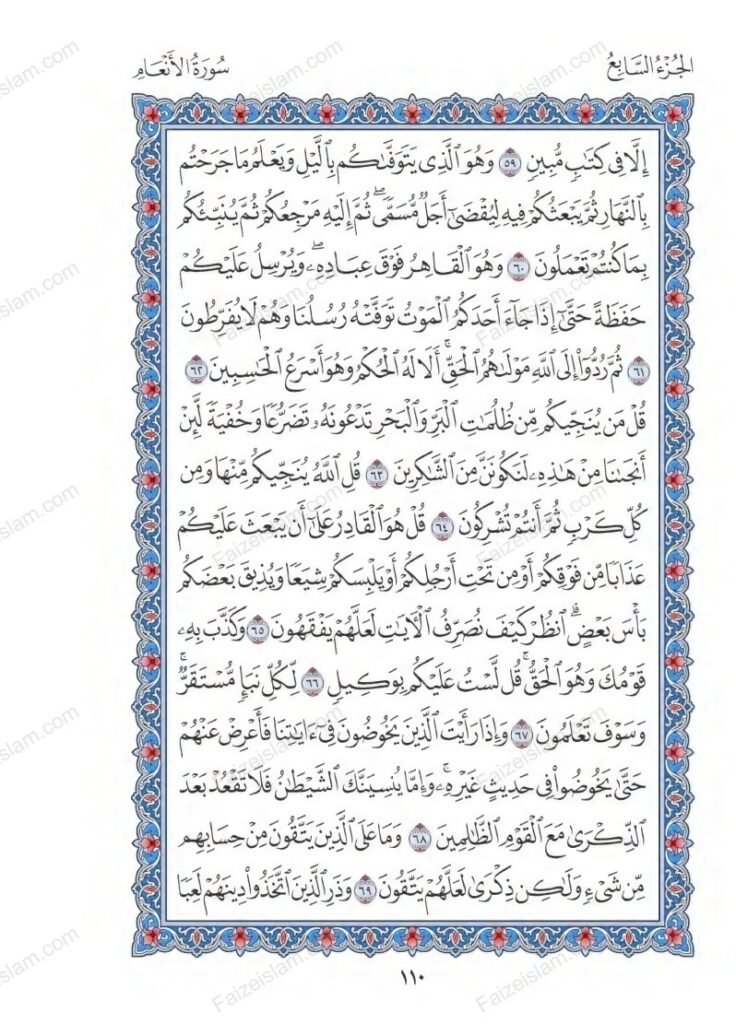 الجُزْءُ السَّابِعُ
سُورَةُ الأَنْعَامِ
إِلَّا فِى كِتَٰبٍ مُّبِينٍ ٥٩ وَهُوَ ٱلَّذِى يَتَوَفَّىٰكُم بِٱلَّيْلِ وَيَعْلَمُ مَا جَرَحْتُم
بِٱلنَّهَارِ ثُمَّ يَبْعَثُكُمْ فِيهِ لِيُقْضَىٰٓ أَجَلٌ مُّسَمًّى ۖ ثُمَّ إِلَيْهِ مَرْجِعُكُمْ ثُمَّ يُنَبِّئُكُم
بِمَا كُنتُمْ تَعْمَلُونَ ٦٠ وَهُوَ ٱلْقَاهِرُ فَوْقَ عِبَادِهِۦ ۖ وَيُرْسِلُ عَلَيْكُمْ
حَفَظَةً حَتَّىٰٓ إِذَا جَآءَ أَحَدَكُمُ ٱلْمَوْتُ تَوَفَّتْهُ رُسُلُنَا وَهُمْ لَا يُفَرِّطُونَ
٦١ ثُمَّ رُدُّوٓا۟ إِلَى ٱللَّهِ مَوْلَىٰهُمُ ٱلْحَقِّ ۚ أَلَا لَهُ ٱلْحُكْمُ وَهُوَ أَسْرَعُ ٱلْحَٰسِبِينَ ٦٢
قُلْ مَن يُنَجِّيكُم مِّن ظُلُمَٰتِ ٱلْبَرِّ وَٱلْبَحْرِ تَدْعُونَهُۥ تَضَرُّعًا وَخُفْيَةً لَّئِنْ
أَنجَىٰنَا مِنْ هَٰذِهِۦ لَنَكُونَنَّ مِنَ ٱلشَّٰكِرِينَ ٦٣ قُلِ ٱللَّهُ يُنَجِّيكُم مِّنْهَا وَمِن
كُلِّ كَرْبٍ ثُمَّ أَنتُمْ تُشْرِكُونَ ٦٤ قُلْ هُوَ ٱلْقَادِرُ عَلَىٰٓ أَن يَبْعَثَ عَلَيْكُمْ
عَذَابًا مِّن فَوْقِكُمْ أَوْ مِن تَحْتِ أَرْجُلِكُمْ أَوْ يَلْبِسَكُمْ شِيَعًا وَيُذِيقَ بَعْضَكُم
بَأْسَ بَعْضٍ ۗ ٱنظُرْ كَيْفَ نُصَرِّفُ ٱلْءَايَٰتِ لَعَلَّهُمْ يَفْقَهُونَ ٦٥ وَكَذَّبَ بِهِۦ
قَوْمُكَ وَهُوَ ٱلْحَقُّ ۚ قُل لَّسْتُ عَلَيْكُم بِوَكِيلٍ ٦٦ لِّكُلِّ نَبَإٍ مُّسْتَقَرٌّ ۚ
وَسَوْفَ تَعْلَمُونَ ٦٧ وَإِذَا رَأَيْتَ ٱلَّذِينَ يَخُوضُونَ فِىٓ ءَايَٰتِنَا فَأَعْرِضْ عَنْهُمْ
حَتَّىٰ يَخُوضُوا۟ فِى حَدِيثٍ غَيْرِهِۦ ۚ وَإِمَّا يُنسِيَنَّكَ ٱلشَّيْطَٰنُ فَلَا تَقْعُدْ بَعْدَ
ٱلذِّكْرَىٰ مَعَ ٱلْقَوْمِ ٱلظَّٰلِمِينَ ٦٨ وَمَا عَلَى ٱلَّذِينَ يَتَّقُونَ مِنْ حِسَابِهِم
مِّن شَىْءٍ وَلَٰكِن ذِكْرَىٰ لَعَلَّهُمْ يَتَّقُونَ ٦٩ وَذَرِ ٱلَّذِينَ ٱتَّخَذُوا۟ دِينَهُمْ لَعِبًا
١١٠
Faizeislam.com